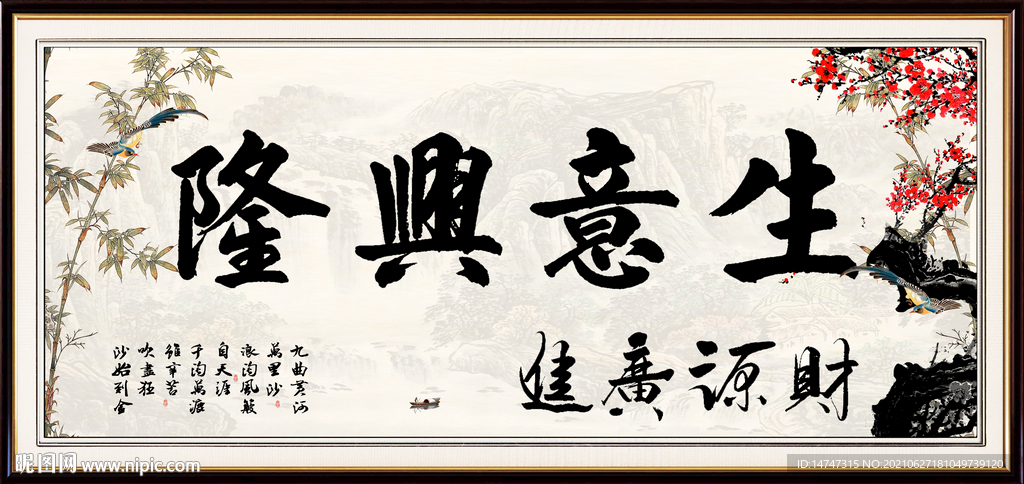 生意興隆
財源廣進
九曲黃河
萬里沙
浪淘風簸
自天涯
千淘萬漉
雖辛苦
吹盡狂
沙始到金
昵图网 www.nipic.com
ID:14747315 NO:20210627181049739120